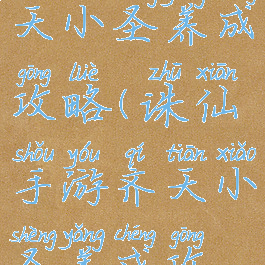 天小圣养成
gōng lüè zhū xiān
攻略(诛仙
shǒu yóu qí tiān xiǎo
手游齐天小
shèng yǎng chéng gōng
圣养成攻